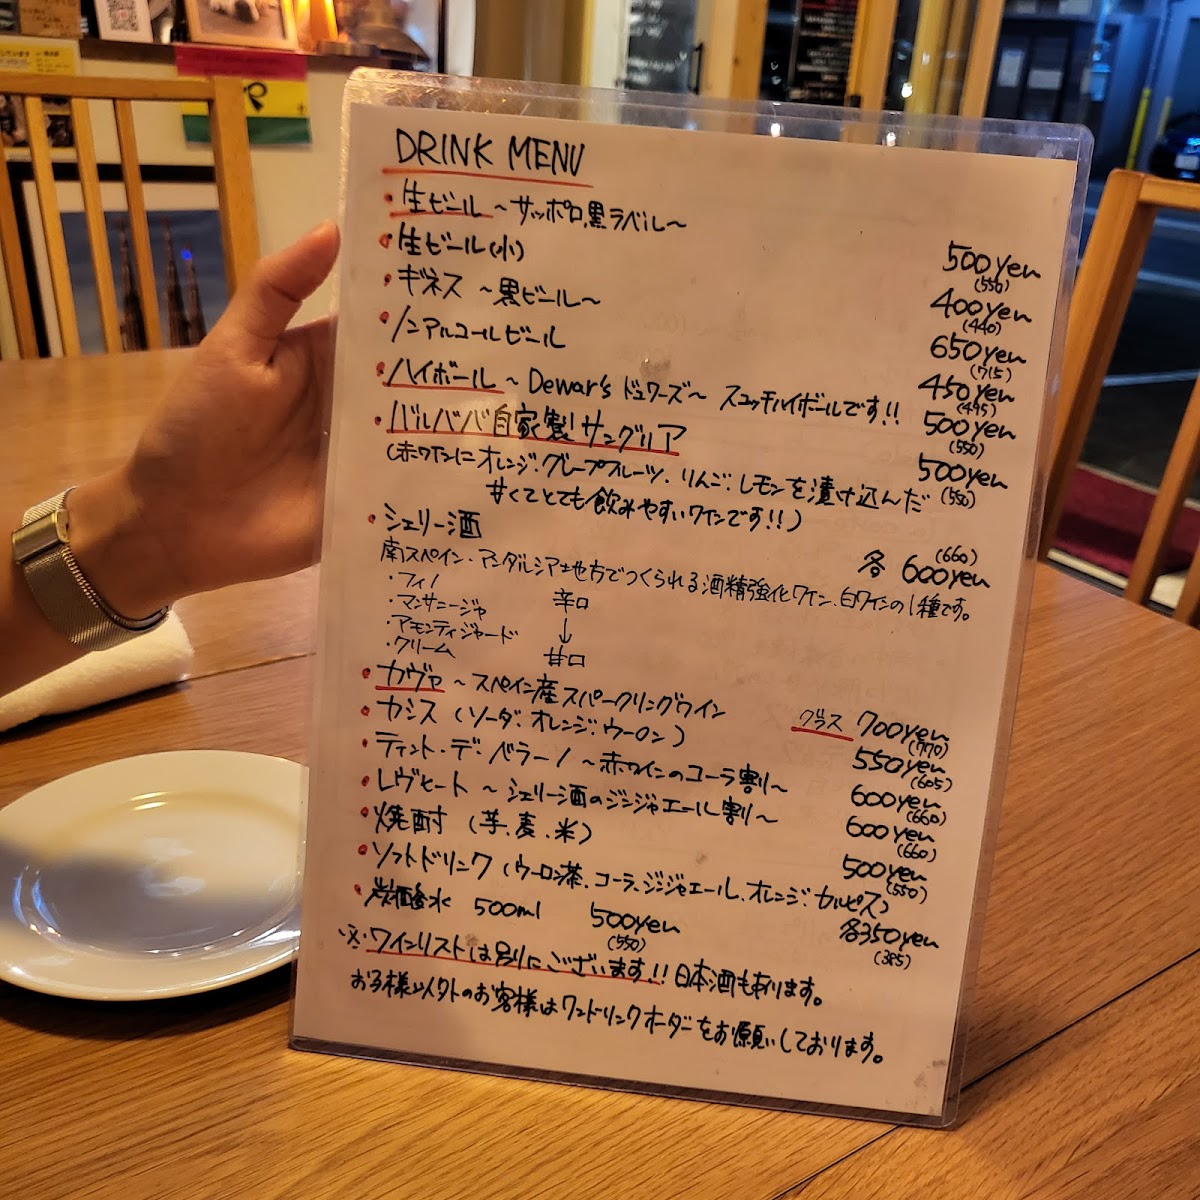 DRINK MENU
・生ビール ～サッポロ黒ラベル～ 500yen (550)
・生ビール(小) 400yen (440)
・ギネス ～黒ビール～ 650yen (715)
・ノンアルコールビール 450yen (495)
・ハイボール ～Dewar's デュワーズ～ スコッチハイボールです!! 500yen (550)
・バルババ自家製サングリア 500yen (550)
(赤ワインにオレンジ、グレープフルーツ、りんご、レモンを漬け込んだ
甘くてとても飲みやすいワインです!!)
・シェリー酒 各 600yen (660)
南スペイン・アンダルシア地方でつくられる酒精強化ワイン、白ワインの1種です。
・フィノ 辛口
・マンサニージャ ↓
・アモンティジャード
・クリーム 甘口
・カヴァ ～スペイン産スパークリングワイン グラス 700yen (770)
・カシス (ソーダ・オレンジ・ウーロン) 550yen (605)
・ティント・デ・ベラーノ ～赤ワインのコーラ割～ 600yen (660)
・レヴヒート ～シェリー酒のジンジャエール割～ 600yen (660)
・焼酎 (芋、麦、米) 500yen (550)
・ソフトドリンク (ウーロン茶、コーラ、ジンジャエール、オレンジ、カルピス) 各350yen (385)
・炭酸水 500ml 500yen (550)
※・ワインリストは別にございます!! 日本酒もあります。
お子様以外のお客様はワンドリンクオーダーをお願いしております。